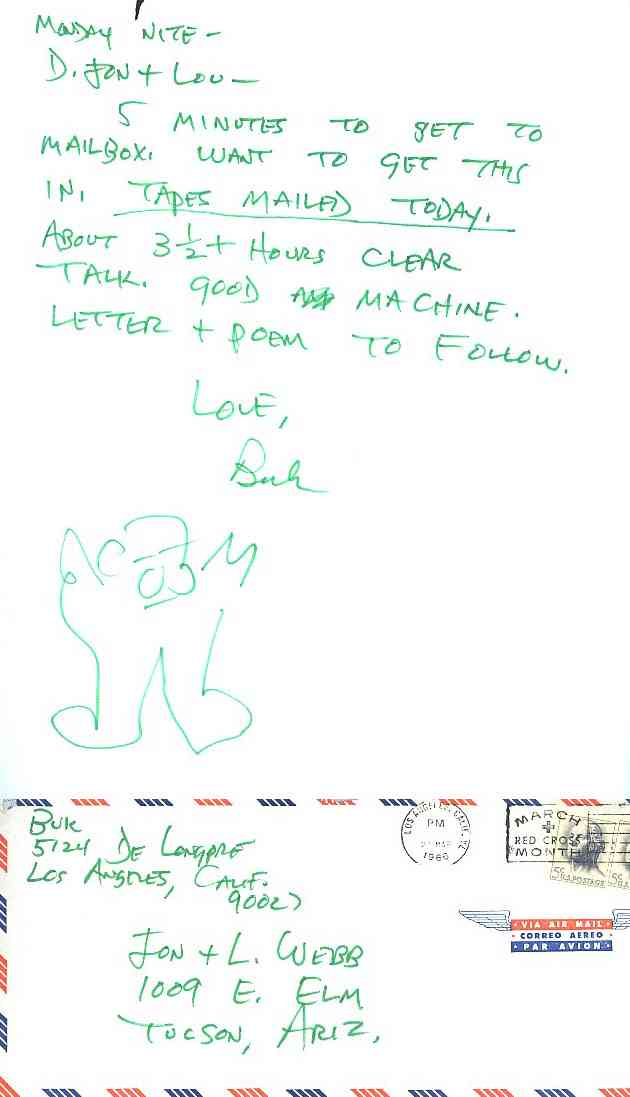 MONDAY NITE -
D. JON + LOU -
5 MINUTES TO GET TO
MAILBOX. WANT TO GET THIS
IN. TAPES MAILED TODAY.
ABOUT 3 1/2 + HOURS CLEAR
TALK. GOOD MACHINE.
LETTER + POEM TO FOLLOW.
LOVE,
Buk
BUK
5124 DE LONGPRE
LOS ANGELES, CALIF.
90027
LOS ANGELES, CALIF.
PM
1966
MARCH
RED CROSS
MONTH
5¢ U.S. POSTAGE
VIA AIR MAIL
CORREO AEREO
PAR AVION
JON + L. WEBB
1009 E. ELM
TUCSON, ARIZ.